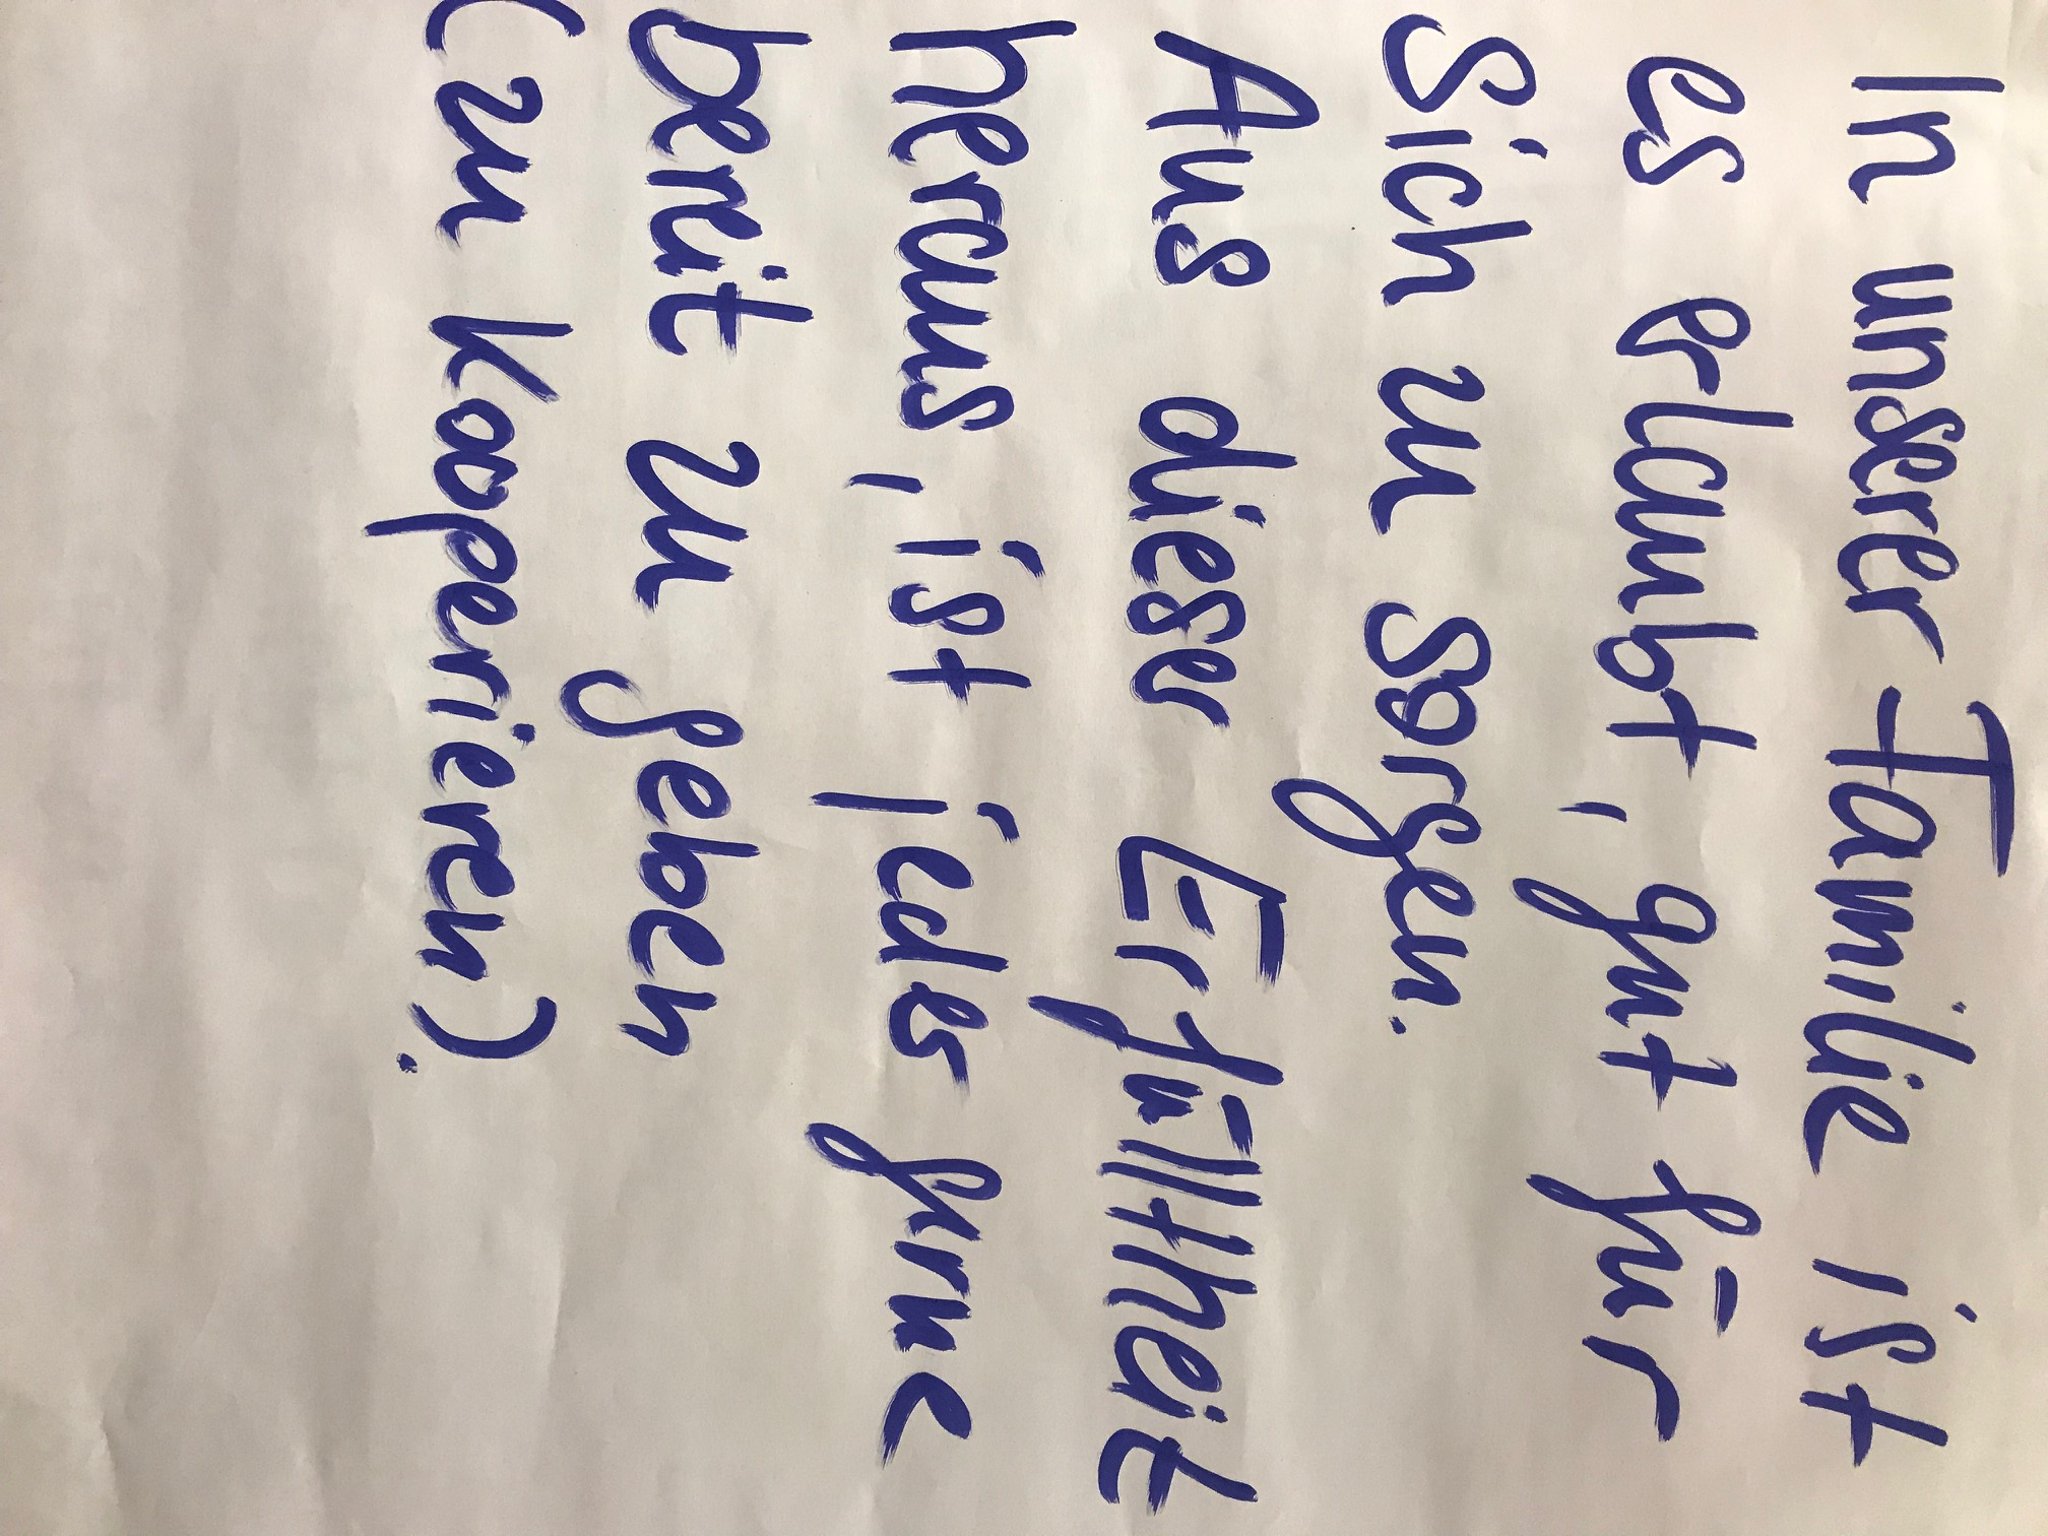 In unserer Familie ist
es erlaubt, gut für
sich zu sorgen.
Aus dieser Erfülltheit
heraus, ist jeder gerne
bereit zu geben
(zu kooperieren).